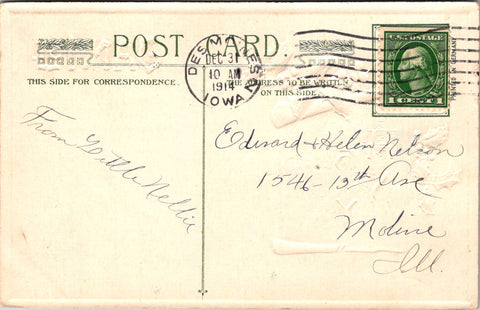 POST CARD.
THIS SIDE FOR CORRESPONDENCE.
THE ADDRESS TO BE WRITTEN
ON THIS SIDE
DES MOINES
DEC 31
10 AM
1914
IOWA
U.S. POSTAGE
1 CENT 1
From Little Nellie
Edward & Helen Nelson
1546-13th Ave
Moline
Ill.